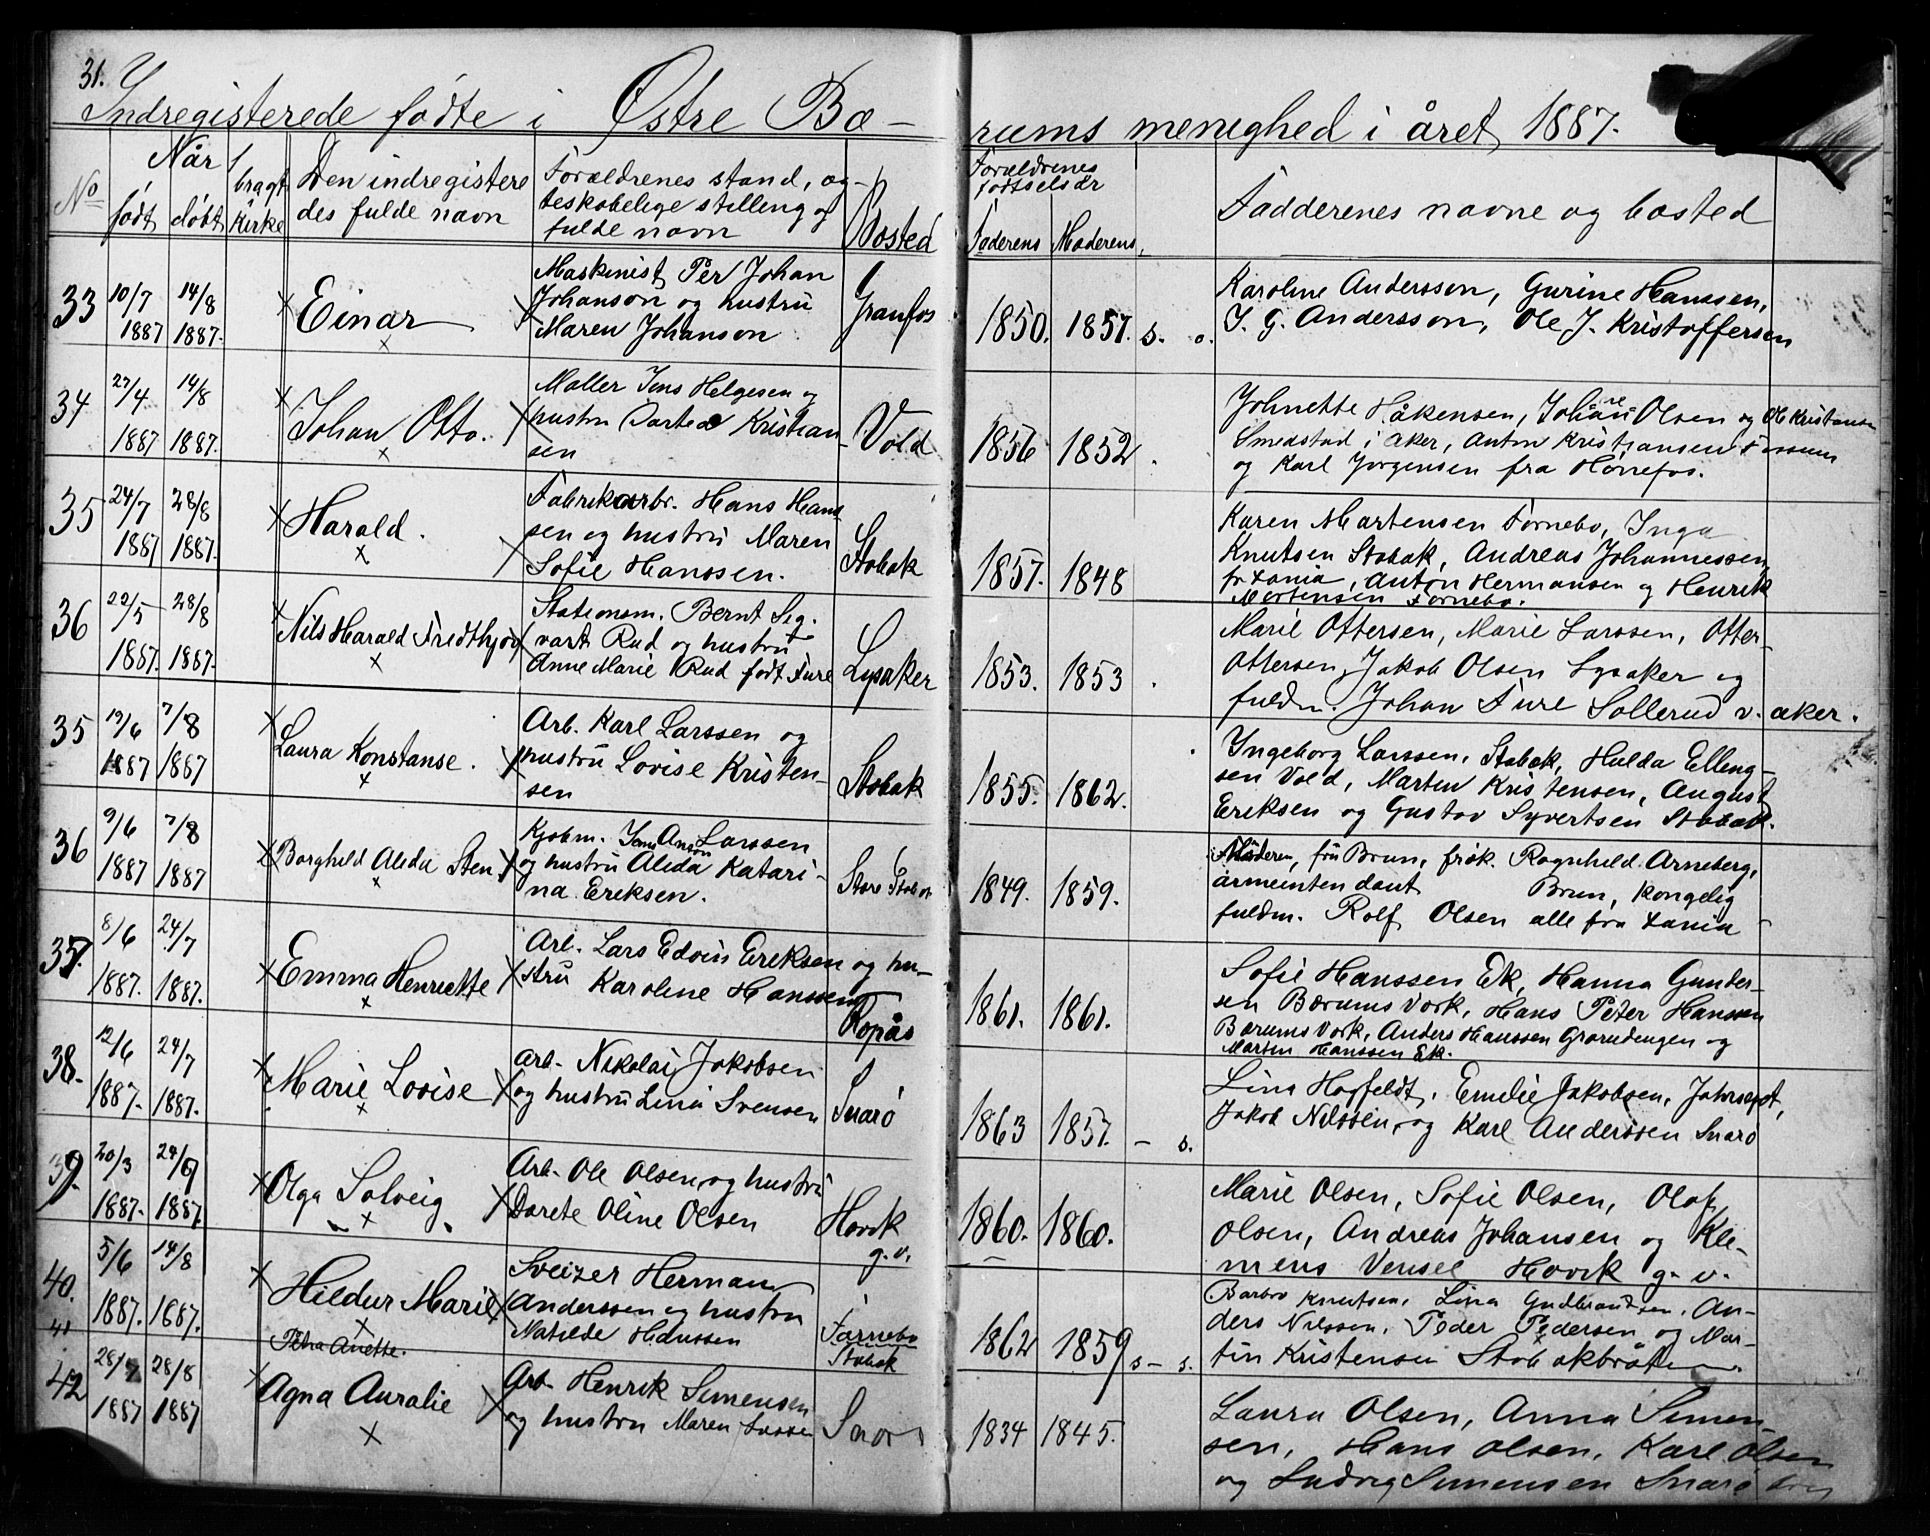 31.
Indregisterede fødte i Østre Bæ-
rums menighed i året 1887.
No
Når
født
døbt
bragt
Kirke
Den indregistere
des fulde navn
Forældrenes stand, æg-
teskabelige stilling og
fulde navn
Bosted
Forældrenes
fødselsår
Faderens Moderens
Fadderenes navne og bosted
33
10/7
1887
14/8
1887.
Einar
Maskinist Per Johan
Johanson og hustru
Maren Johanson
Granfos
1850. 1857. s. o.
Karoline Andersson, Gurine Hanssen,
J. G. Andersson, Ole J. Kristoffersen
34
27/4
1887
14/8
1887.
Johan Otto.
Møller Jens Helgesen og
hustru Dortea Kristian-
sen
Vold
1856 1852
Johnette Håkensen, Olsen og Ole Kristansen
Smedstad i Aker, Anton Kristiansen Fossum
og Karl Jørgensen fra Hønefos.
35
24/7
1887
28/8
1887.
Harald.
Fabrikarbr. Hans Hans
sen og hustru Maren
Sofie Hanssen.
Stabæk
1857. 1848
Karen Martensen Fornebo, Inga
Knutsen Stabæk, Andreas Johannessen
fr Xania, Anton Hermansen og Henrik
Mortensen Fornebo.
36
22/5
1887.
28/8
1887.
Nils Harald Fredthjov
Stationsm. Bernt Sig-
vart Rud og hustru
Anne Marie Rud født Fure
Lysaker
1853. 1853
Marie Ottersen, Marie Larssen, Otter
Ottersen, Jakob Olsen Lysaker og
fuldm. Johan Fure Sollerud v. aker.
35
19/6
1887
7/8
1887
Laura Konstanse.
Arb. Karl Larssen og
hustru Lovise Kristen-
sen
Stabæk
1855. 1862.
Ingeborg Larssen, Stabæk, Hulda Elling-
sen Vold, Martin Kristensen, August
Eriksen og Gustav Syvertsen Stabæk.
36
9/6
1887
7/8
1887
Borghild Alida Sten
Kjøbm. Jens Anton Larssen
og hustru Alida Katari-
na Eriksen.
Store Stabæk
1849. 1859.
Moderen, fru Brun, frøk. Ragnhild Arneberg,
armeintendant Brun, kongelig
fuldm. Rolf Olsen alle fra Xania
37.
8/6
1887.
24/7
1887.
Emma Henriette
Arb. Lars Edvin Eriksen og hu-
stru Karoline Hanssen
Ropås
1861. 1861.
Sofie Hanssen Ek, Hanna Gunder-
sen Bærums Værk, Hans Peter Hanssen
Bærums Værk, Anders Hanssen Grorudengen og
Martin Hanssen Ek.
38.
12/6
1887.
24/7
1887.
Marie Lovise
Arb. Nikolai Jakobsen
og hustru Lina Svensen
Snarø
1863 1857. - s.
Lina Hogfeldt, Emilie Jakobsen,
Jakob Nilssen, og Karl Anderssen Snarø
39.
20/3
1887.
24/6
1887.
Olga Solveig
Arb. Ole Olsen og hustru
Dorete Oline Olsen
Høvik
g.v.
1860. 1860.
Marie Olsen, Sofie Olsen, Olaf
Olsen, Andreas Johansen og Kle-
mens Vensel Høvik g. v.
40.
5/6
1887.
14/8
1887.
Hildur Marie
Sveizer Herman
Anderssen og hustru
Matilde Hanssen
Fornebo
1862 1859 s - s.
Barbro Knutsen, Lina Gudbrandsen, An-
ders Nilssen, Peder Pedersen og Mar-
tin Kristensen Stabækbråten
41
Petra Anette.
Stabæk
42
28/7
1887
28/8
1887
Agna Auralie
Arb. Henrik Simensen
og hustru Maren
Snarø
1834 1845.
Laura Olsen, Anna Simen
sen, Hans Olsen, Karl Olsen
og Ludvig Simensen Snarø